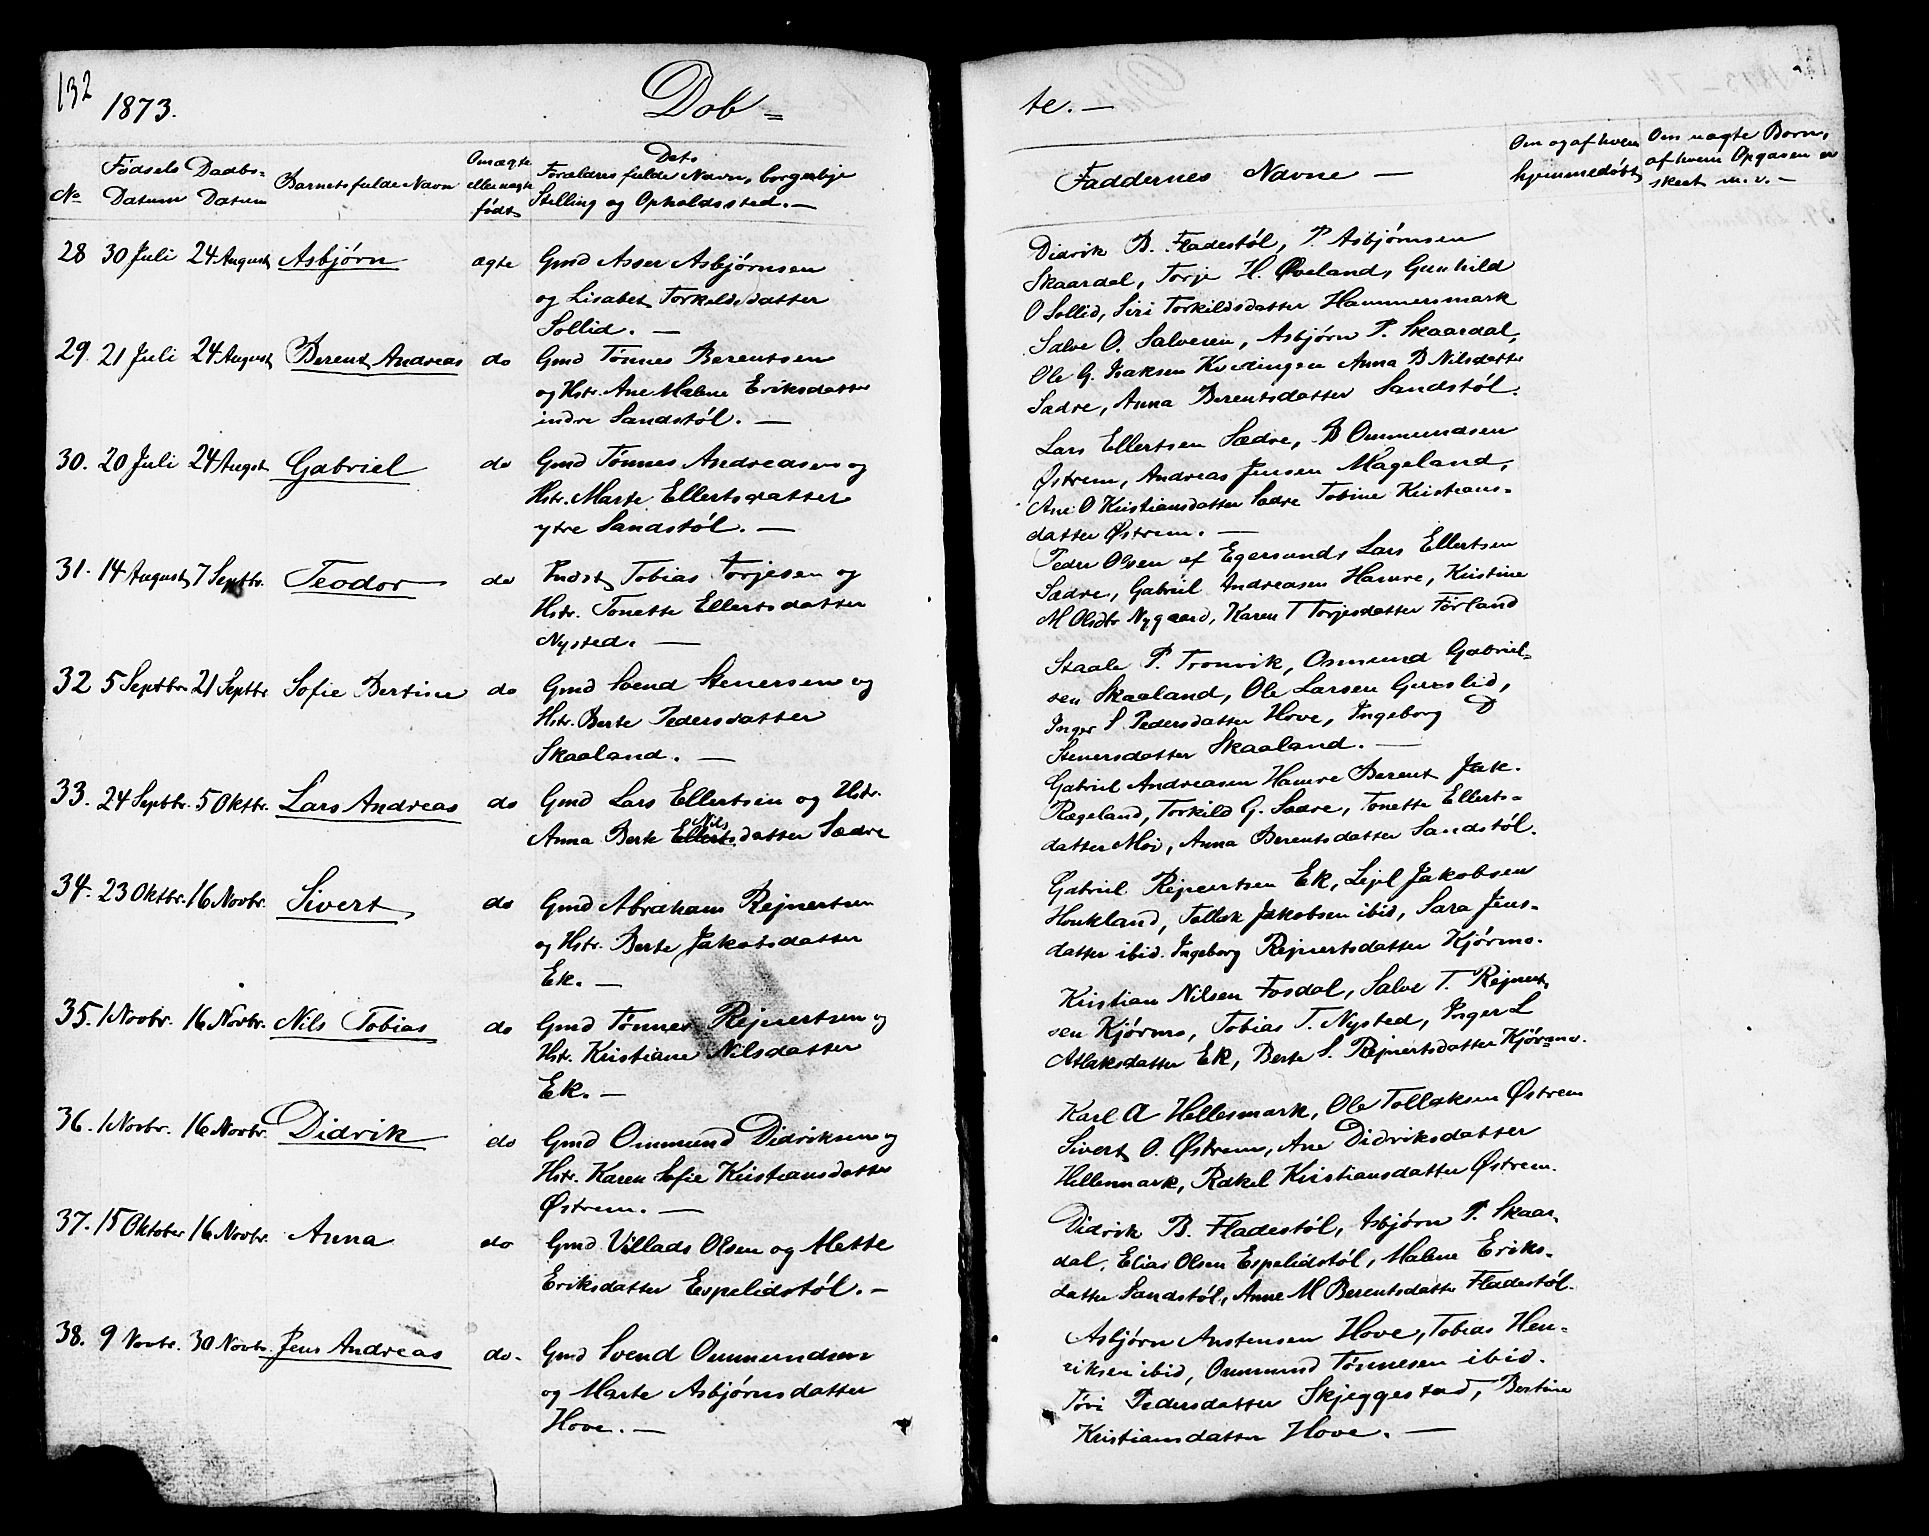 132
1873.
Døb=
te. —
No
Fødsels Datum
Daabs= Datum
Barnets fulde Navn
Om ægte eller uægte født
Dets Forældres fulde Navn, borgerlige Stilling og Opholdssted. —
Faddernes Navne —
Om og af hvem hjemmedøbt
Om uægte Børn, af hvem Opgaven er skeet m. v. —
28 30 Juli 24 August Asbjørn ægte Gmd Asser Asbjørnsen
og Lisabet Torkildsdatter
Sollid. —
Didrik B. Fladestøl, P. Asbjørnsen
Skaardal, Torje H. Øveland, Gunhild
O Sollid, Siri Torkildsdatter Hammersmark
29. 21 Juli 24 August Berent Andreas do Gmd Tønnes Berentsen
og Hstr. Ane Malene Eriksdatter
indre Sandstøl. —
Salve O. Salvesen, Asbjørn P. Skaardal,
Ole G. Isaksen Kvidingen Anna B Nilsdatter
Sædre, Anna Berentsdatter Sandstøl.
30. 20 Juli 24 Augst Gabriel do Gmd Tønnes Andreasen og
Hstr. Marte Ellertsdatter
ytre Sandstøl. —
Lars Ellertsen Sædre, B Ommundsen
Østrem, Andreas Jensen Mageland,
Ane O Kristiansdatter Sædre Tobine Kristians=
datter Østrem. —
31. 14 August 7 Septbr. Teodor do Tobias Torjesen og
Hstr. Tonette Ellertsdatter
Nysted. —
Peder Olsen af Egersund, Lars Ellertsen
Sædre, Gabriel Andreasen Hamre, Kristine
M Olsdtr Nygaard, Karen T Torjesdatter Førland
32 5 Septbr 21 Septbr Sofie Bertine do Gmd Svend Stenersen og
Hstr. Berte Pedersdatter
Skaaland. —
Staale P. Tronvik, Osmund Gabriel=
sen Skaaland, Ole Larsen Gyveslid,
Inger S. Pedersdatter Hove, Ingeborg D
Stenersdatter Skaaland. —
33. 24 Septbr. 5 Oktbr. Lars Andreas do Gmd Lars Ellertsen og Hstr.
Nils
Anna Berte Ellertsdatter Sædre
Gabriel Andreasen Hamre Berent Jak.
Rægeland, Torkild G. Sædre, Tonette Ellerts=
datter Moi, Anna Berentsdatter Sandstøl.
34. 23 Oktbr. 16 Novbr. Sivert do Gmd Abraham Rejnertsen
og Hstr. Berte Jakobsdatter
Ek. —
Gabriel Rejnertsen Ek, Jakobsen
Houkland, Tollak Jakobsen ibid, Sara Jens=
datter ibid. Ingeborg Rejnertsdatter Kjørmo.
35. 1 Novbr. 16 Novbr. Nils Tobias do Gmd Tønnes Rejnertsen og
Hstr. Kristiane Nilsdatter
Ek. —
Kristian Nilsen Fosdal, Salve T. Rejnert
sen Kjørmo, Tobias T. Nysted, Inger L
Atlaksdatter Ek, Berte S. Rejnertsdatter Kjørmo.
36. 1 Novbr. 16 Novbr. Didrik do Gmd Ommund Didriksen og
Hstr. Karen Sofie Kristiansdatter
Østrem. —
Karl A Hellesmark, Ole Tollaksen Østrem
Sivert O. Østrem, Ane Didriksdatter
Hellesmark, Rakel Kristiansdatter Østrem.
37. 15 Oktober 16 Novbr. Anna do Gmd. Villads Olsen og Mette
Eriksdatter Espelidstøl. —
Didrik B. Fladestøl, Asbjørn P. Skaar
dal, Elias Olsen Espelidstøl, Malene Eriks=
datter Sandstøl, Anne M Berentsdatter Fladestøl.
38. 9 Novbr. 30 Novbr. Jens Andreas do. Gmd Svend Ommundsen
og Marte Asbjørnsdatter
Hove. —
Asbjørn Anstensen Hove, Tobias Hen=
riksen ibid, Ommund Tønnesen ibid.
Tøri Pedersdatter Skjeggestad, Bertine
Kristiansdatter Hove. —